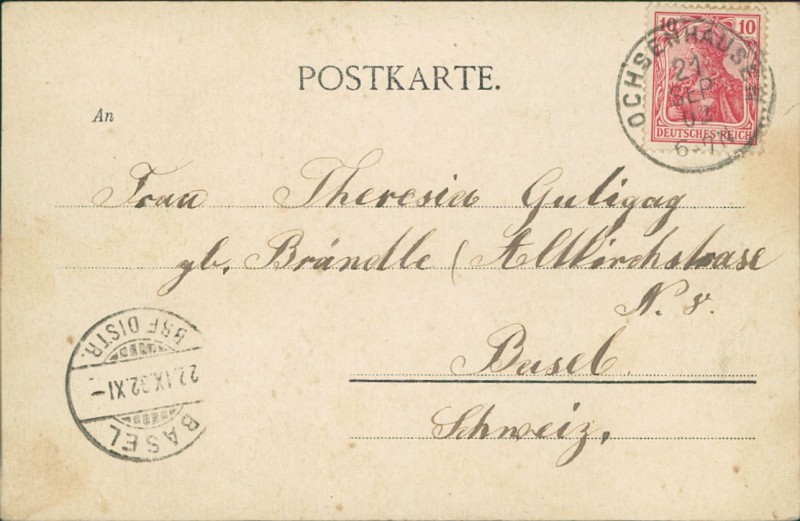 10 10
DEUTSCHES REICH
OCHSENHAUSEN
21
SEP
02
POSTKARTE.
An
Frau Theresia Guligag
gb. Brändle (Altkirchstrase
N. 8.
Basel
Schweiz.
BRF. DISTR.
22.IX.02.XI-
BASEL